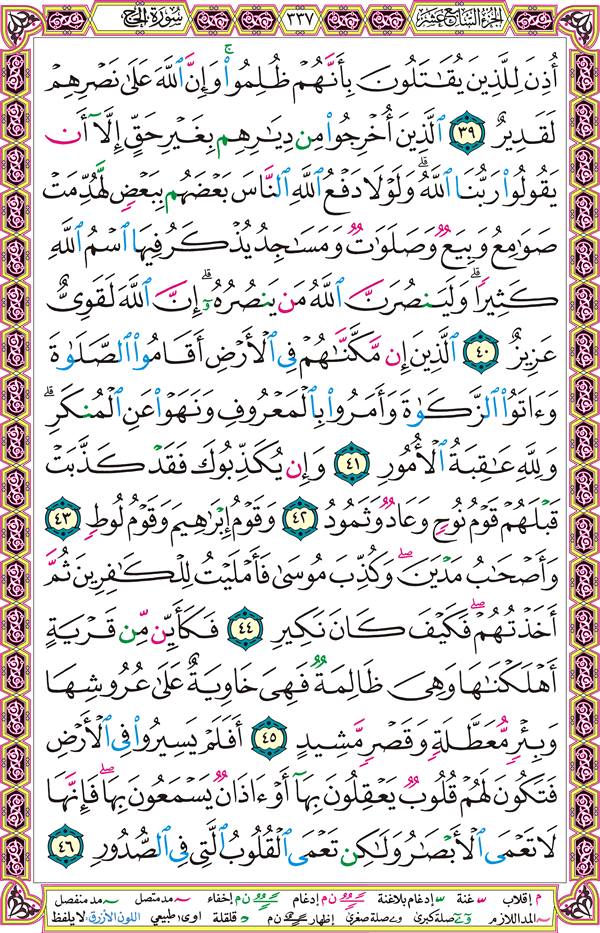 الجزء السابع عشر ٣٣٧ سورة الحج
أُذِنَ لِلَّذِينَ يُقَٰتَلُونَ بِأَنَّهُمْ ظُلِمُوا۟ ۚ وَإِنَّ ٱللَّهَ عَلَىٰ نَصْرِهِمْ
لَقَدِيرٌ ٣٩ ٱلَّذِينَ أُخْرِجُوا۟ مِن دِيَٰرِهِم بِغَيْرِ حَقٍّ إِلَّآ أَن
يَقُولُوا۟ رَبُّنَا ٱللَّهُ ۗ وَلَوْلَا دَفْعُ ٱللَّهِ ٱلنَّاسَ بَعْضَهُم بِبَعْضٍ لَّهُدِّمَتْ
صَوَٰمِعُ وَبِيَعٌ وَصَلَوَٰتٌ وَمَسَٰجِدُ يُذْكَرُ فِيهَا ٱسْمُ ٱللَّهِ
كَثِيرًا ۗ وَلَيَنصُرَنَّ ٱللَّهُ مَن يَنصُرُهُۥٓ ۗ إِنَّ ٱللَّهَ لَقَوِىٌّ
عَزِيزٌ ٤٠ ٱلَّذِينَ إِن مَّكَّنَّٰهُمْ فِى ٱلْأَرْضِ أَقَامُوا۟ ٱلصَّلَوٰةَ
وَءَاتَوُا۟ ٱلزَّكَوٰةَ وَأَمَرُوا۟ بِٱلْمَعْرُوفِ وَنَهَوْا۟ عَنِ ٱلْمُنكَرِ ۗ
وَلِلَّهِ عَٰقِبَةُ ٱلْأُمُورِ ٤١ وَإِن يُكَذِّبُوكَ فَقَدْ كَذَّبَتْ
قَبْلَهُمْ قَوْمُ نُوحٍ وَعَادٌ وَثَمُودُ ٤٢ وَقَوْمُ إِبْرَٰهِيمَ وَقَوْمُ لُوطٍ ٤٣
وَأَصْحَٰبُ مَدْيَنَ ۖ وَكُذِّبَ مُوسَىٰ فَأَمْلَيْتُ لِلْكَٰفِرِينَ ثُمَّ
أَخَذْتُهُمْ ۖ فَكَيْفَ كَانَ نَكِيرِ ٤٤ فَكَأَيِّن مِّن قَرْيَةٍ
أَهْلَكْنَٰهَا وَهِىَ ظَالِمَةٌ فَهِىَ خَاوِيَةٌ عَلَىٰ عُرُوشِهَا
وَبِئْرٍ مُّعَطَّلَةٍ وَقَصْرٍ مَّشِيدٍ ٤٥ أَفَلَمْ يَسِيرُوا۟ فِى ٱلْأَرْضِ
فَتَكُونَ لَهُمْ قُلُوبٌ يَعْقِلُونَ بِهَآ أَوْ ءَاذَانٌ يَسْمَعُونَ بِهَا ۖ فَإِنَّهَا
لَا تَعْمَى ٱلْأَبْصَٰرُ وَلَٰكِن تَعْمَى ٱلْقُلُوبُ ٱلَّتِى فِى ٱلصُّدُورِ ٤٦
م إقلاب غنة إدغام بلاغنة ن م إدغام إخفاء مد متصل مد منفصل
المد اللازم ن م إظهار صلة كبرى صلة صغرى قلقلة اوى طبيعي اللون الأزرق: لا يلفظ